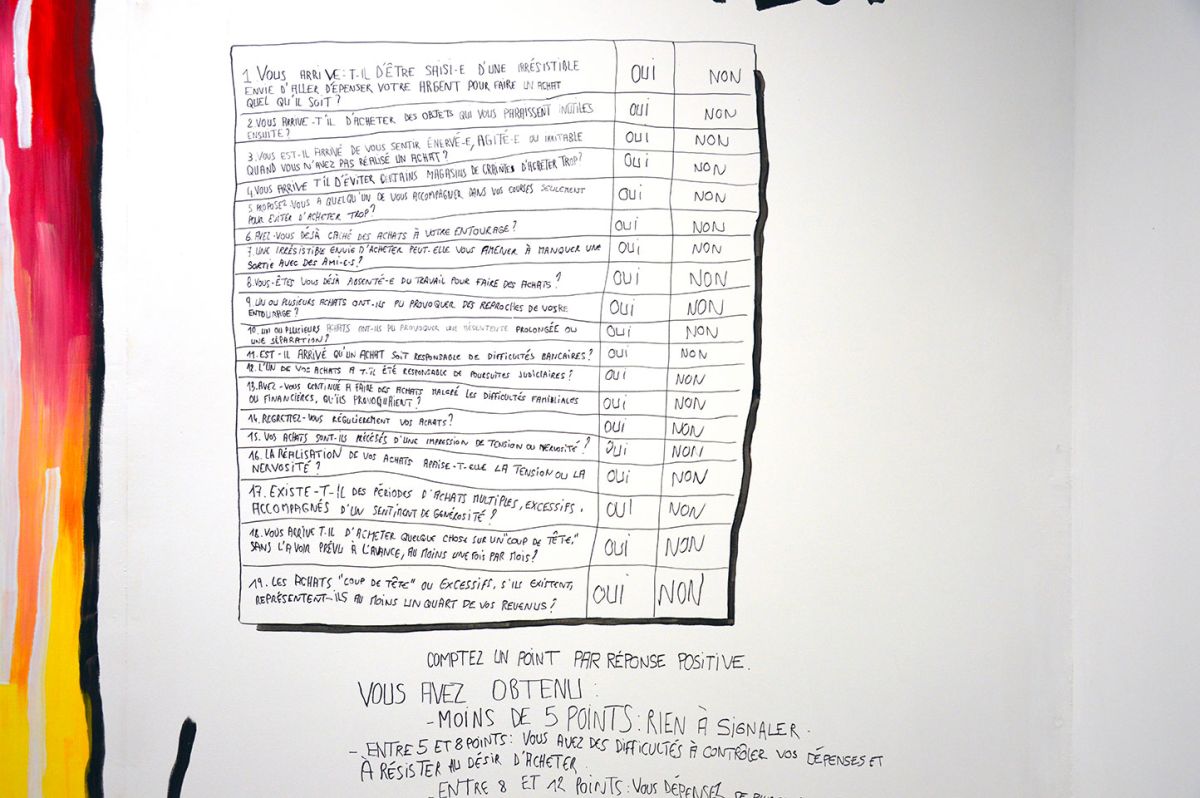 1 VOUS ARRIVE-T-IL D'ÊTRE SAISI-E D'UNE IRRÉSISTIBLE OUI NON
ENVIE D'ALLER DÉPENSER VOTRE ARGENT POUR FAIRE UN ACHAT
QUEL QU'IL SOIT ?
2. VOUS ARRIVE-T'IL D'ACHETER DES OBJETS QUI VOUS PARAISSENT INUTILES OUI NON
ENSUITE ?
3. VOUS EST-IL ARRIVÉ DE VOUS SENTIR ÉNERVÉ-E, AGITÉ-E OU IRRITABLE OUI NON
QUAND VOUS N'AVEZ PAS RÉALISÉ UN ACHAT ?
4. VOUS ARRIVE T'IL D'ÉVITER CERTAINS MAGASINS DE CRAINTES D'ACHETER TROP ? OUI NON
5. PROPOSEZ-VOUS A QUELQU'UN DE VOUS ACCOMPAGNER DANS VOS COURSES SEULEMENT OUI NON
POUR ÉVITER D'ACHETER TROP ?
6. AVEZ-VOUS DÉJÀ CACHÉ DES ACHATS À VOTRE ENTOURAGE ? OUI NON
7. UNE IRRÉSISTIBLE ENVIE D'ACHETER PEUT-ELLE VOUS AMENER À MANQUER UNE OUI NON
SORTIE AVEC DES AMI-E-S ?
8. VOUS-ÊTES VOUS DÉJÀ ABSENTÉ-E DU TRAVAIL POUR FAIRE DES ACHATS ? OUI NON
9. UN OU PLUSIEURS ACHATS ONT-ILS PU PROVOQUER DES REPROCHES DE VOTRE OUI NON
ENTOURAGE ?
10. UN OU PLUSIEURS ACHATS ONT-ILS PU PROVOQUER UNE MÉSENTENTE PROLONGÉE OU OUI NON
UNE SÉPARATION ?
11. EST-IL ARRIVÉ QU'UN ACHAT SOIT RESPONSABLE DE DIFFICULTÉS BANCAIRES ? OUI NON
12. L'UN DE VOS ACHATS A T-IL ÉTÉ RESPONSABLE DE POURSUITES JUDICIAIRES ? OUI NON
13. AVEZ-VOUS CONTINUÉ A FAIRE DES ACHATS MALGRÉ LES DIFFICULTÉS FAMILIALES OUI NON
OU FINANCIÈRES, QU'ILS PROVOQUAIENT ?
14. REGRETTEZ-VOUS RÉGULIEREMENT VOS ACHATS ? OUI NON
15. VOS ACHATS SONT-ILS PRÉCÉDÉS D'UNE IMPRESSION DE TENSION OU NERVOSITÉ ? OUI NON
16. LA RÉALISATION DE VOS ACHATS APAISE-T-ELLE LA TENSION OU LA OUI NON
NERVOSITÉ ?
17. EXISTE-T-IL DES PÉRIODES D'ACHATS MULTIPLES, EXCESSIFS, OUI NON
ACCOMPAGNÉS D'UN SENTIMENT DE GÉNÉROSITÉ ?
18. VOUS ARRIVE T-IL D'ACHETER QUELQUE CHOSE SUR UN "COUP DE TÊTE," OUI NON
SANS L'AVOIR PRÉVU À L'AVANCE, AU MOINS UNE FOIS PAR MOIS ?
19. LES ACHATS "COUP DE TÊTE" OU EXCESSIFS, S'ILS EXISTENT, OUI NON
REPRÉSENTENT-ILS AU MOINS UN QUART DE VOS REVENUS ?
COMPTEZ UN POINT PAR RÉPONSE POSITIVE.
VOUS AVEZ OBTENU :
- MOINS DE 5 POINTS : RIEN À SIGNALER.
- ENTRE 5 ET 8 POINTS : VOUS AVEZ DES DIFFICULTÉS À CONTRÔLER VOS DÉPENSES ET
À RÉSISTER AU DÉSIR D'ACHETER.
- ENTRE 8 ET 12 POINTS : VOUS DÉPENSEZ